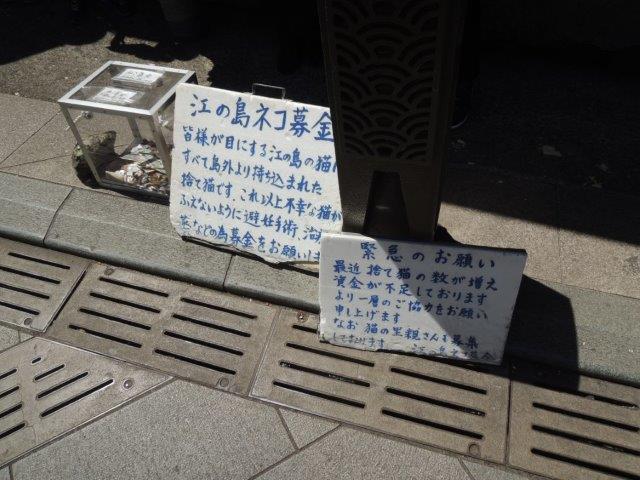 江の島ネコ募金
皆様が目にする江の島の猫
すべて島外より持ち込まれた
捨て猫です。これ以上不幸な猫が
ふえないように避妊手術、治
などの為募金をお願いしま
緊急のお願い
最近捨て猫の数が増え
資金が不足しております
より一層のご協力をお願い
申し上げます
なお 猫の里親さんも募集
しております 江の島ネコ募金